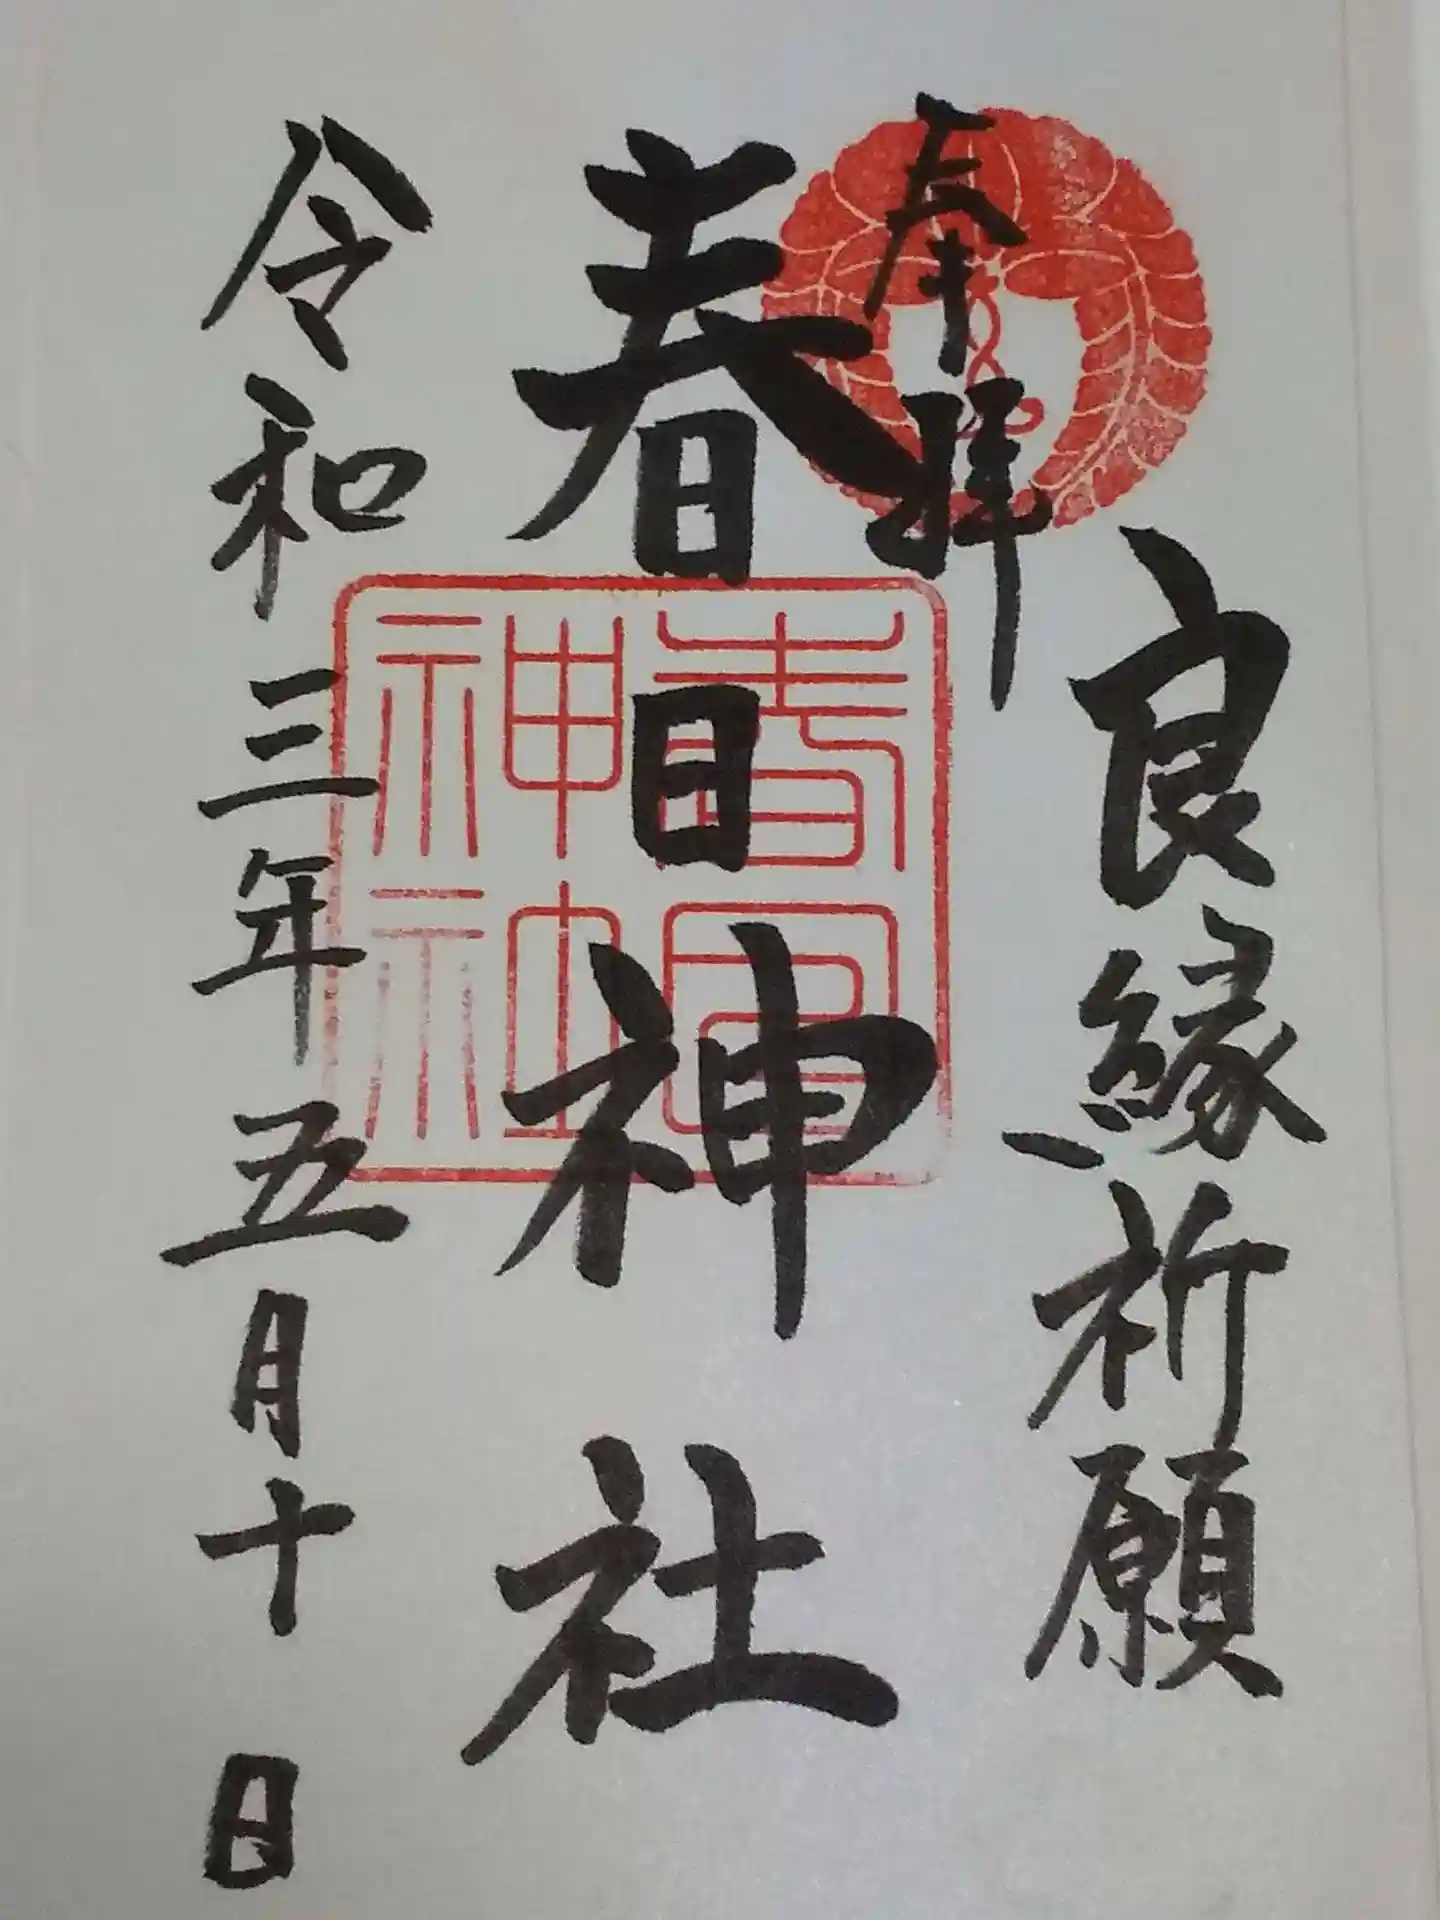 奉拝
良縁祈願
春日神社
春日
神社
令和三年五月十日